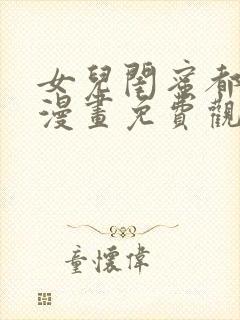 女兒閨蜜都
漫畫免費觀
童懷偉